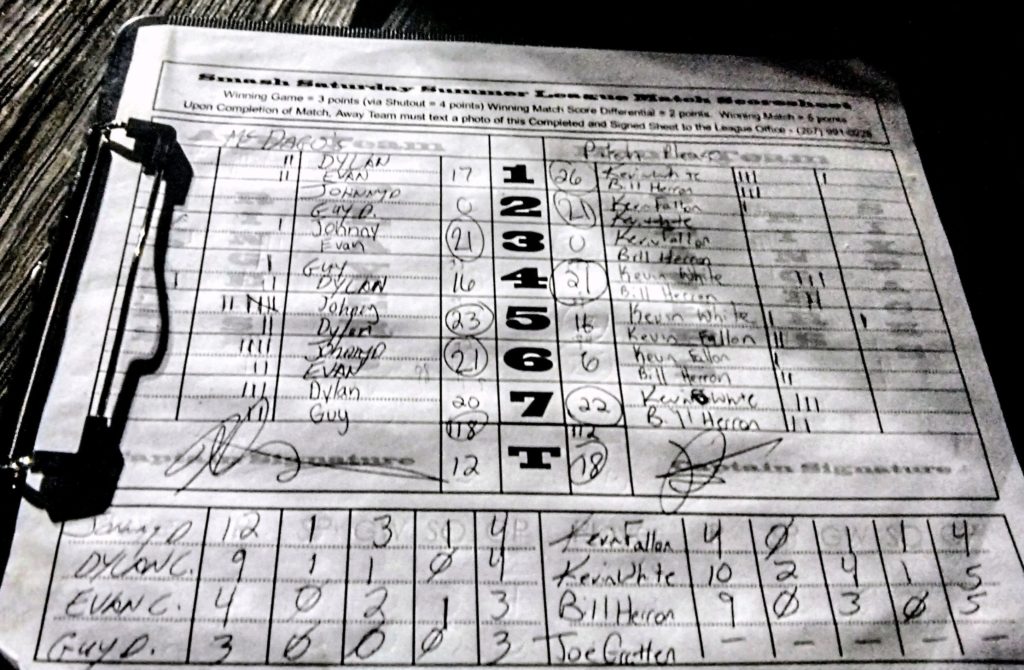 Smash Saturday Summer League Match Scoresheet
Winning Game = 3 points (via Shutout = 4 points) Winning Match Score Differential = 2 points. Winning Match = 6 points
Upon Completion of Match, Away Team must text a photo of this Completed and Signed Sheet to the League Office - (267) 991-
Team Pitch Please Team
DYLAN 17 1 26 Kevin White
EVAN Bill Herron
JOHNNYD 0 2 21 Kevin Fallon
Guy D. Kevin White
Johnny 21 3 0 Kevin Fallon
Evan Bill Herron
Guy 16 4 21 Kevin White
DYLAN Bill Herron
Johnny 23 5 16 Kevin White
Dylan Kevin Fallon
JohnnyD 21 6 6 Kevin Fallon
EVAN Bill Herron
Dylan 20 7 22 Kevin White
Guy Bill Herron
118 112
Signature 12 T 18 Captain Signature
Johnny D. 12 1 3 4 Kevin Fallon 4 0 1 1 4
DYLAN C. 9 1 1 0 4 Kevin White 10 2 4 1 5
EVAN C. 4 0 2 1 3 Bill Herron 9 0 3 0 5
Guy D. 3 0 0 0 3 Joe Gratten - - - - -